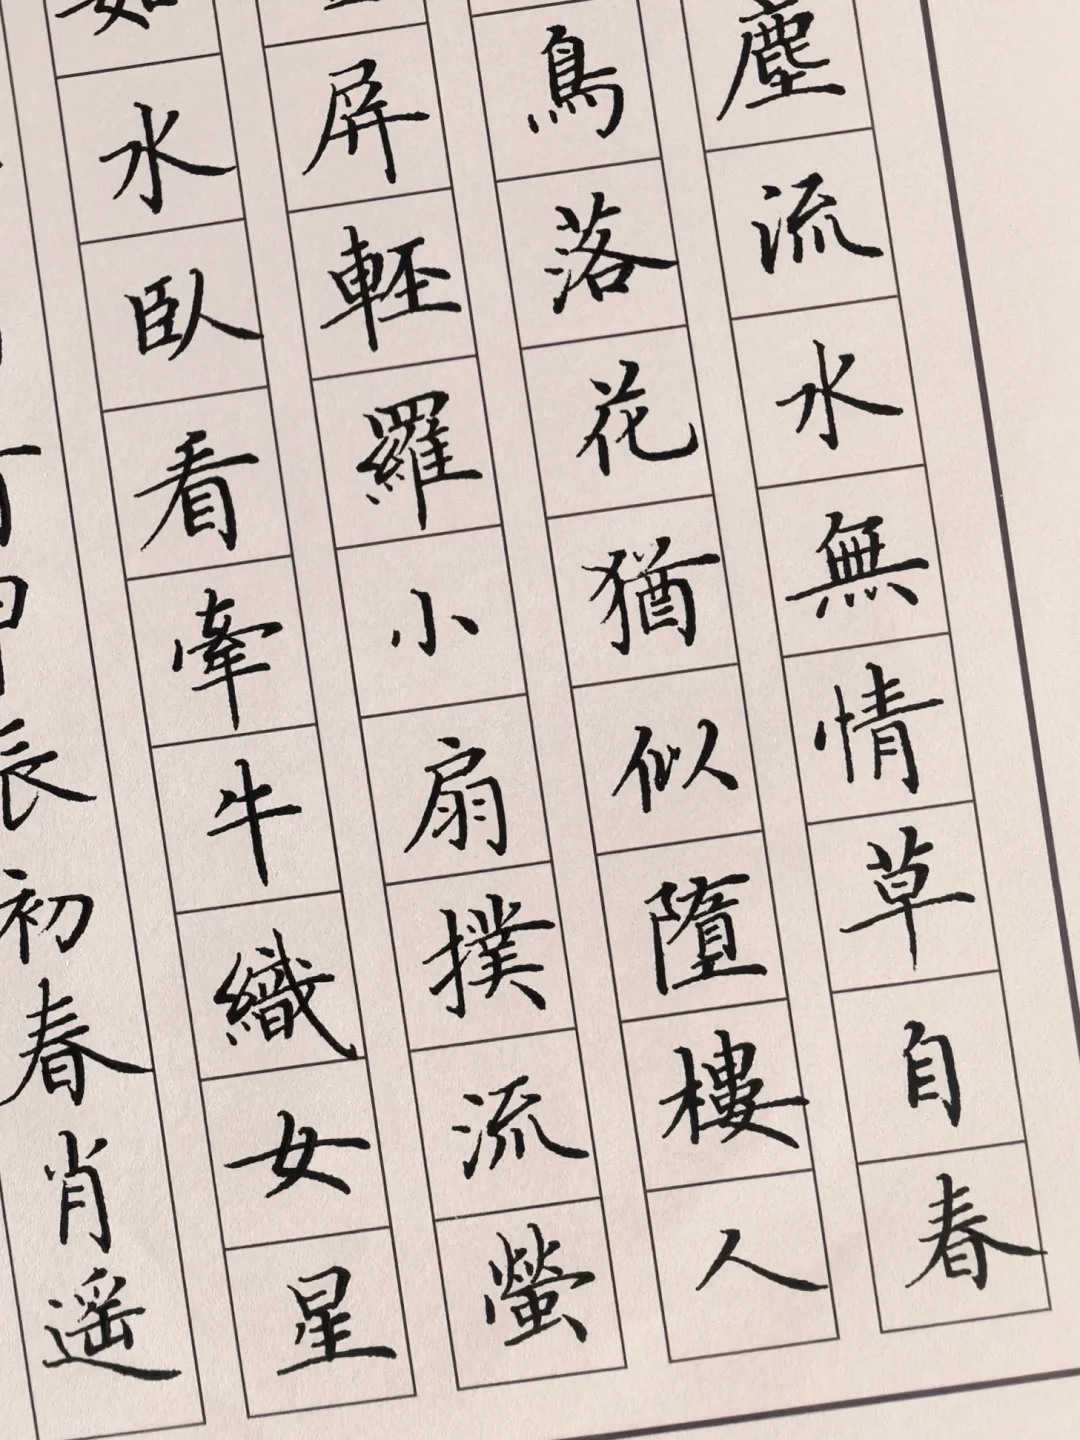 塵流水無情草自春
鳥落花猶似墮樓人
屏輕羅小扇撲流螢
水臥看牽牛織女星
初春肖遥